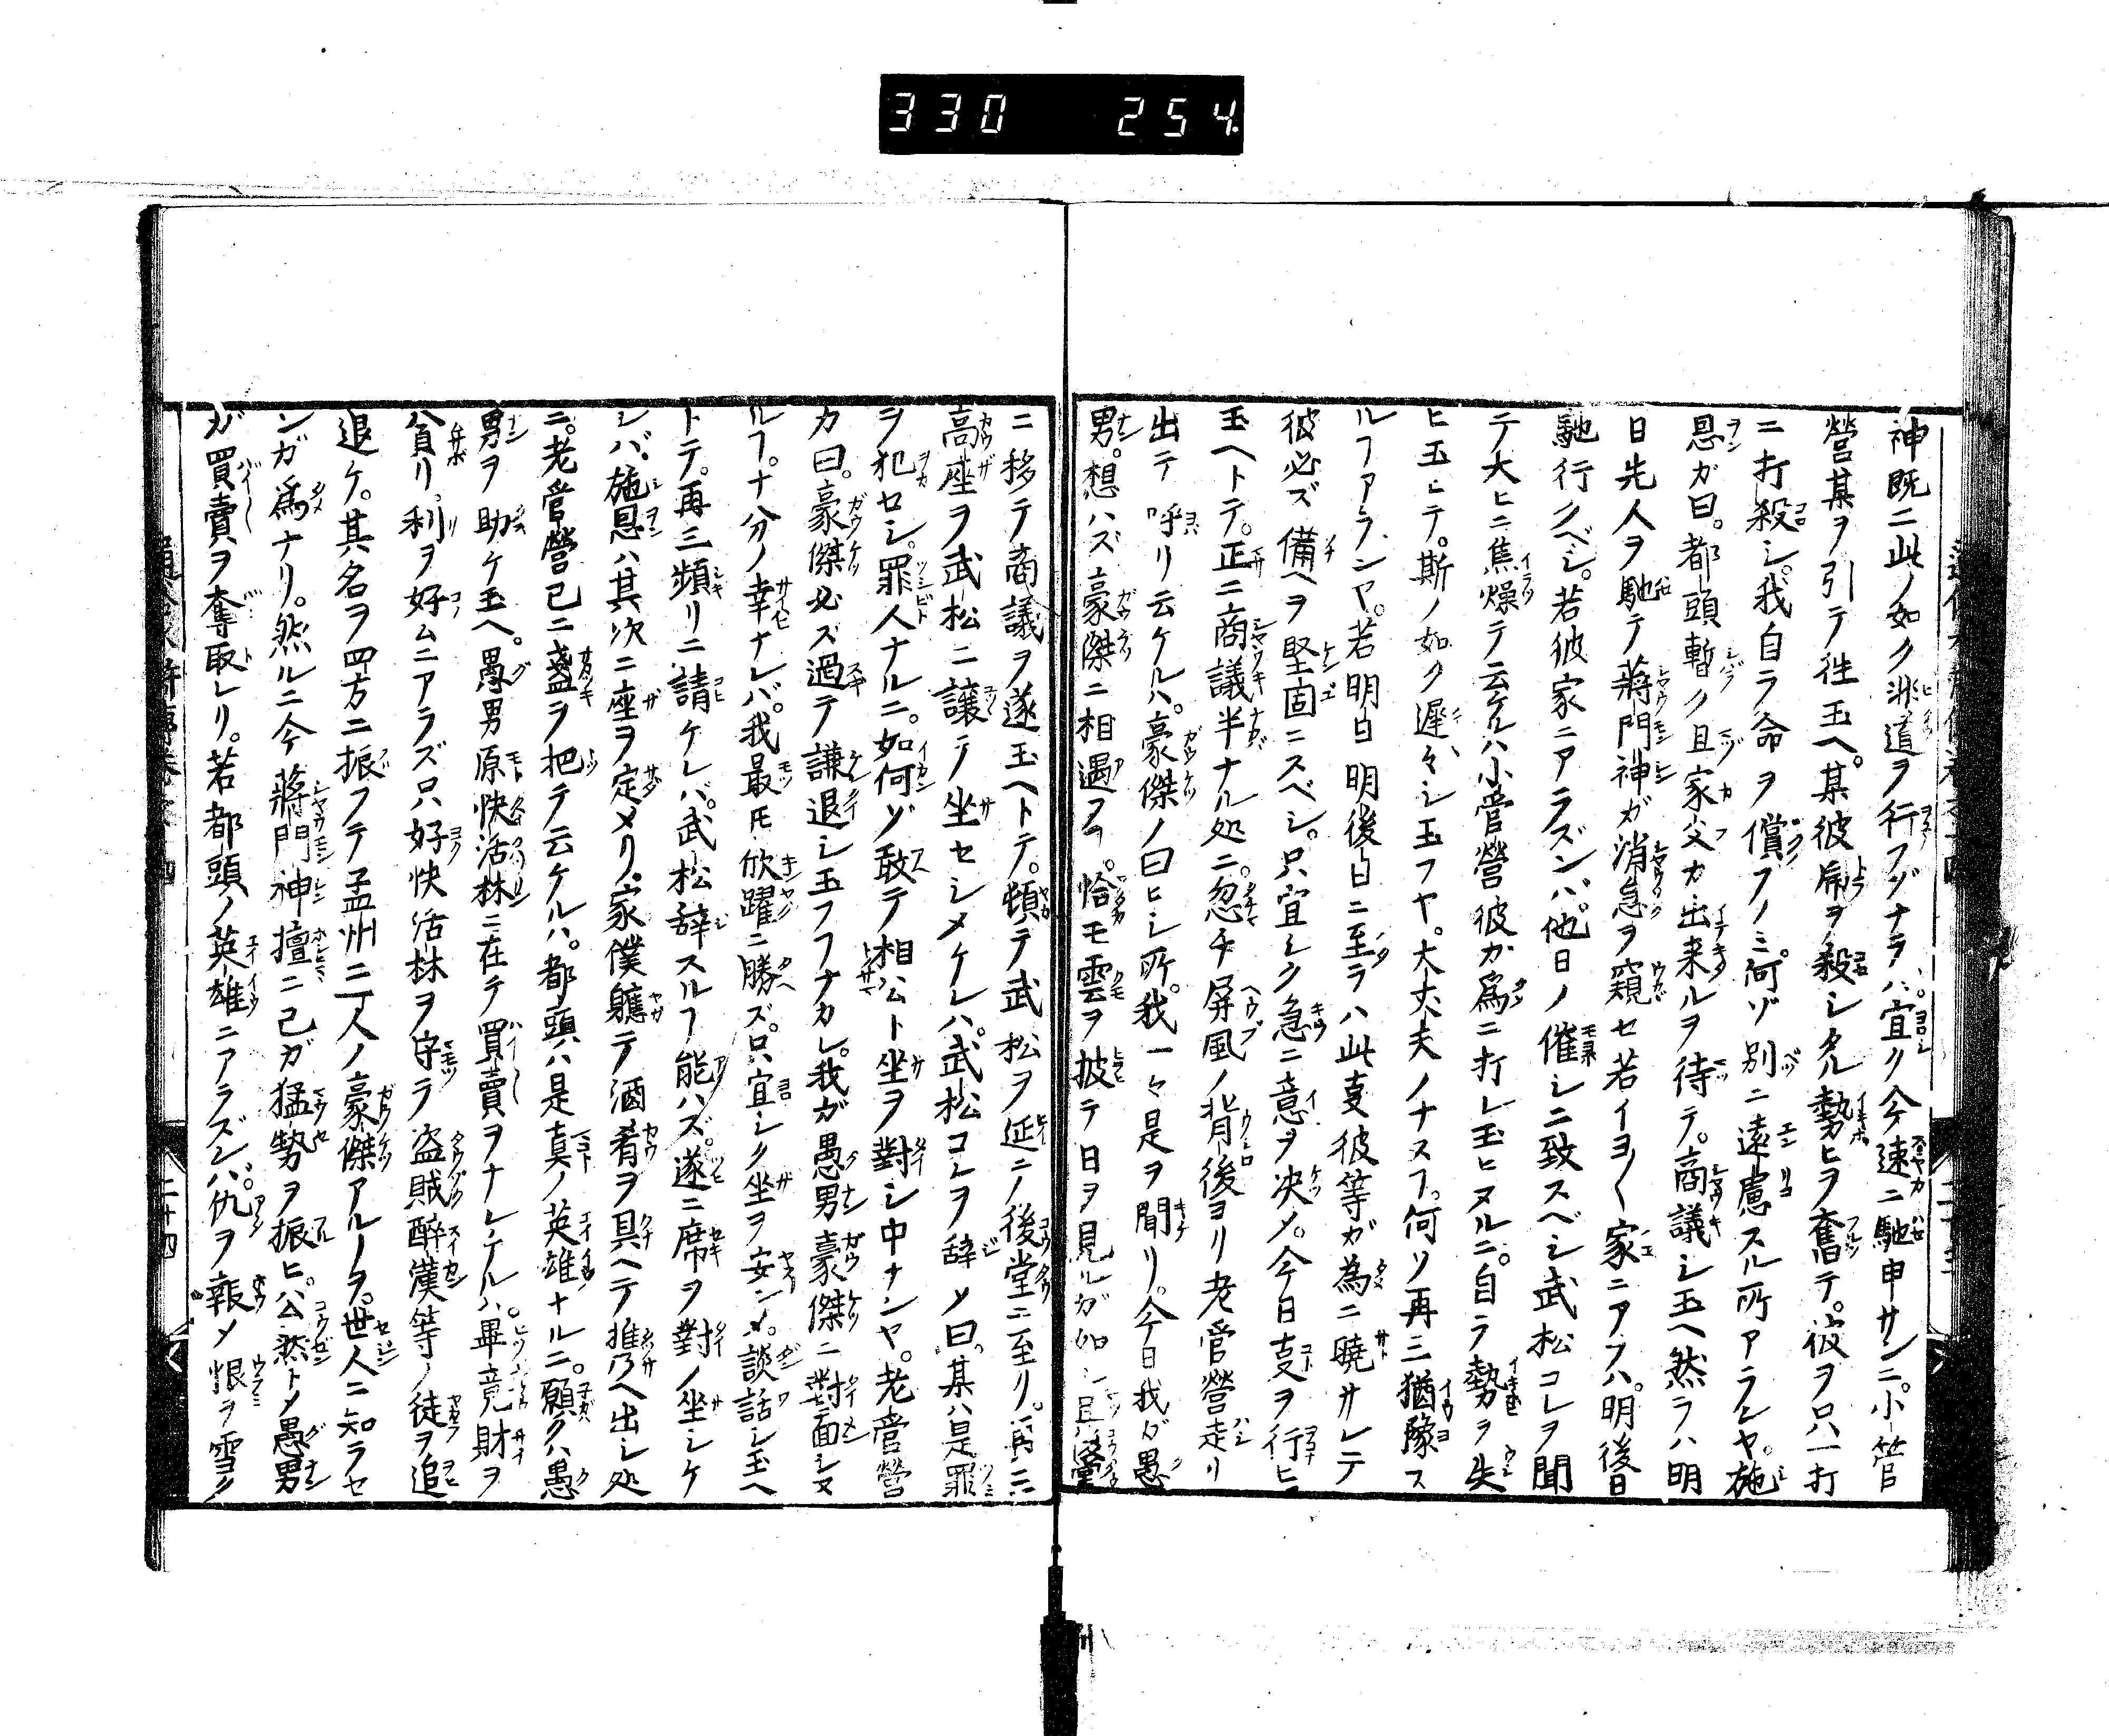 330 254.
神既ニ此ノ如ク非道ヲ行フヅナラハ。宜ク今速ニ馳申サンニ。小管
營某ヲ引テ徃玉ヘ。某彼虎ヲ殺シタル勢ヒヲ奮テ。彼ヲ只一打
ニ打殺シ。我自ラ命ヲ償フノミ。何ゾ別ニ遠慮スル所アランヤ。施
恩ガ曰。都頭暫ク且家父カ出来ルヲ待テ。商議シ玉ヘ然ラハ明
日先人ヲ馳テ蔣門神ガ消息ヲ窺セ若イヨ〳〵家ニアラハ。明後日
馳行クベシ。若彼家ニアラズンバ。他日ノ催シニ致スベシ武松コレヲ聞
テ大ヒニ焦燥テ云ケルハ小管營彼カ爲ニ打レ玉ヒヌルニ。自ラ勢ヲ失
ヒ玉ヒテ。斯ノ如ク遲々シ玉フヤ。大丈夫ノナスヿ。何ソ再三猶豫ス
ルヿアランヤ。若明日明後日ニ至ラハ此叓彼等ガ為ニ曉サレテ
彼必ズ備ヘヲ堅固ニスベシ。只宜シク急ニ意ヲ决メ。今日叓ヲ行ヒ
玉ヘトテ。正ニ商議半ナル処ニ。忽チ屏風ノ背後ヨリ老管營走リ
出テ呼リ云ケルハ。豪傑ノ曰ヒシ所。我一々是ヲ聞リ。今日我ガ愚
男。想ハズ豪傑ニ相遇フヿ。恰モ雲ヲ披テ日ヲ見ルガ如シ且後堂
ニ移テ商議ヲ遂玉ヘトテ。頓テ武松ヲ延ニノ後堂ニ至リ。
高座ヲ武松ニ讓テ坐セシメケレハ。武松コレヲ辞メ曰。某ハ是罪
ヲ犯セシ。罪人ナルニ。如何ゾ敢テ相公ト坐ヲ對シ申ナンヤ。老管營
カ曰。豪傑必ズ過テ謙退シ玉フヿナカレ。我ガ愚男豪傑ニ對面シヌ
ルヿ。十分ノ幸ナレバ。我最モ欣躍ニ勝ヘズ。只宜シク坐ヲ安ンメ。談話シ玉ヘ
トテ。再三頻リニ請ケレバ。武松辞スルヿ能ハズ。遂ニ席ヲ對ノ坐シケ
レバ、施恩ハ其次ニ座ヲ定メリ。家僕軈テ酒肴ヲ具ヘテ捧ヘ出シ処
ニ。老管營已ニ盞ヲ把テ云ケルハ。都頭ハ是真ノ英雄ナルニ。願クハ愚
男ヲ助ケ玉ヘ。愚男原快活林ニ在テ買賣ヲナシケルハ。畢竟財ヲ
貪リ。利ヲ好ムニアラズ只好快活林ヲ守ラ盗賊醉漢等ノ徒ヲ追
退ケ。其名ヲ四方ニ振フテ孟州ニ一人ノ豪傑アルーヲ。世人ニ知ラセ
ンガ爲ナリ。然ルニ今蔣門神擅ニ己ガ猛勢ヲ振ヒ。公然トメ愚男
ガ買賣ヲ奪取レリ。若都頭ノ英雄ニアラズンバ。仇ヲ報メ恨ヲ雪ク
二十四